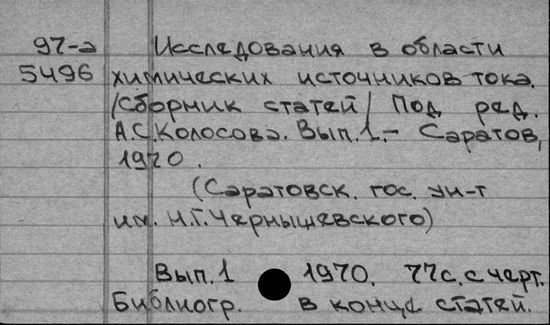 97-а Исследования в области
5496 химических источников тока.
/Сборник статей/ Под ред.
А.С.Колосова. Вып.1.- Саратов,
1970.
(Саратовск. гос. ун-т
им. Н.Г.Чернышевского)
Вып.1 1970. 77с. с черт.
Библиогр. в конце статей.